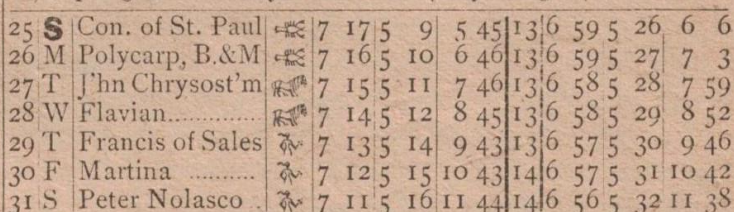 25 S Con. of St. Paul 7 17 5 9 5 45 13 6 59 5 26 6 6
26 M Polycarp, B.&M 7 16 5 10 6 46 13 6 59 5 27 7 3
27 T J'hn Chrysost'm 7 15 5 11 7 46 13 6 58 5 28 7 59
28 W Flavian.............. 7 14 5 12 8 45 13 6 58 5 29 8 52
29 T Francis of Sales 7 13 5 14 9 43 13 6 57 5 30 9 46
30 F Martina .......... 7 12 5 15 10 43 14 6 57 5 31 10 42
31 S Peter Nolasco .. 7 11 5 16 11 44 14 6 56 5 32 11 38